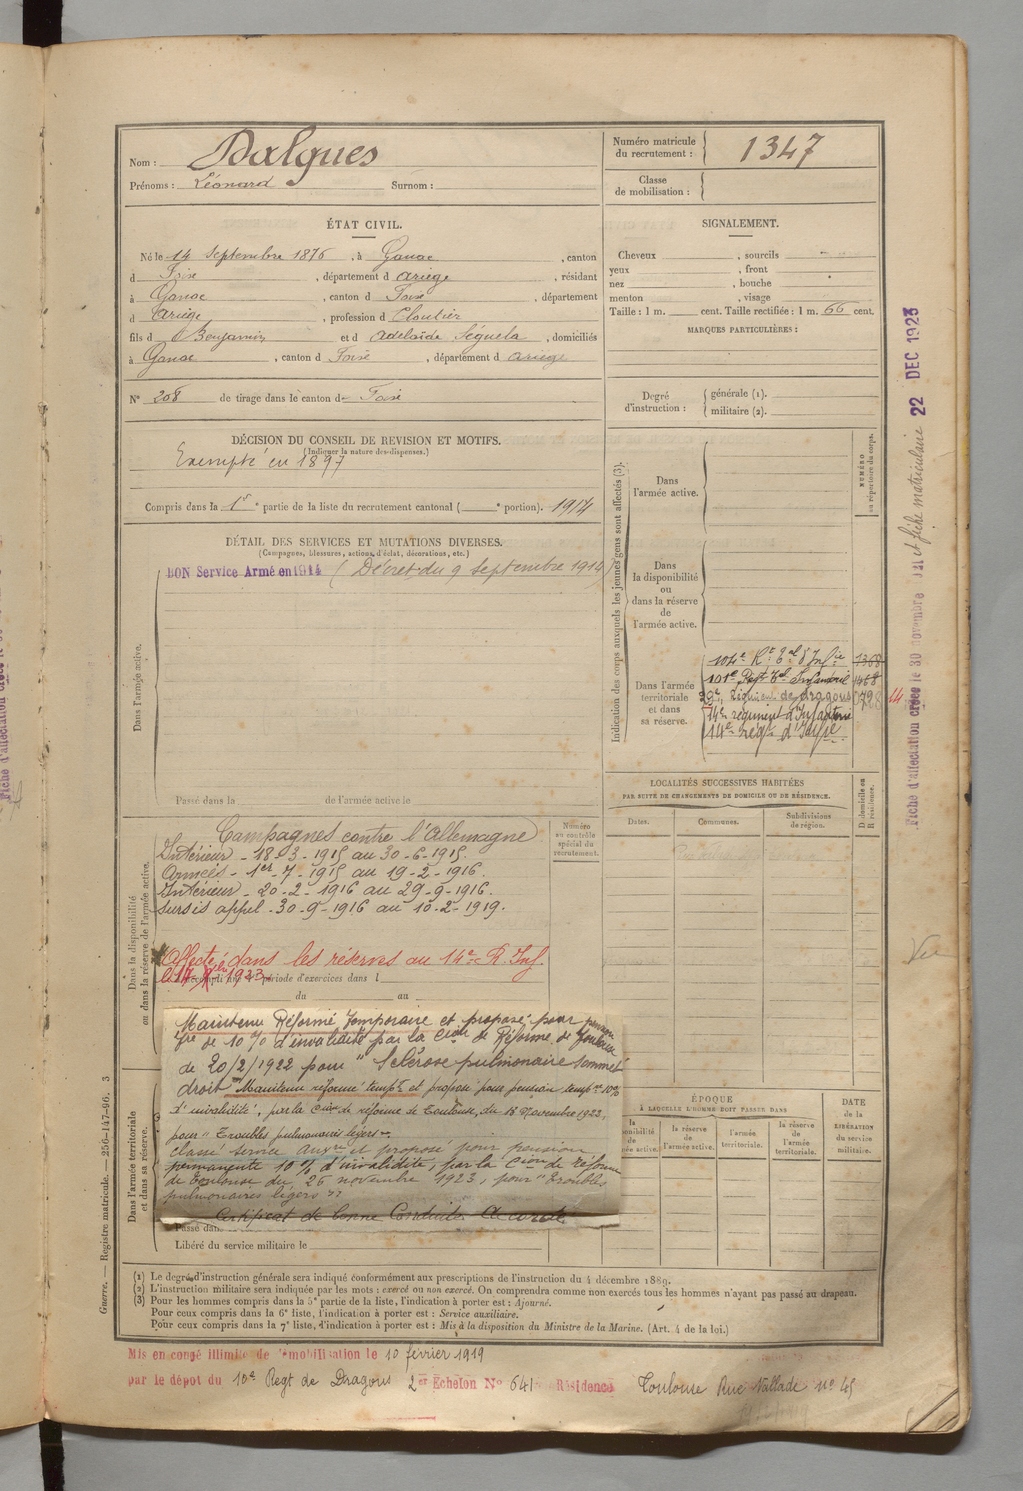 Nom : Dalgues
Prénoms : Léonard Surnom :
Numéro matricule du recrutement : 1347
Classe de mobilisation :
ÉTAT CIVIL.
Né le 14 Septembre 1876, à Ganac, canton
d Foix, département d Ariège, résidant
à Ganac, canton d Foix, département
d Ariège, profession d Cloutier
fils d Benjamin et d Adelaïde Séguela, domiciliés
à Ganac, canton d Foix, département d Ariège
N° 208 de tirage dans le canton d Foix
SIGNALEMENT.
Cheveux , sourcils
yeux , front
nez , bouche
menton , visage
Taille : 1 m. cent. Taille rectifiée : 1 m. 66 cent.
MARQUES PARTICULIÈRES :
Degré d'instruction : générale (1).
militaire (2).
DÉCISION DU CONSEIL DE REVISION ET MOTIFS.
(Indiquer la nature des dispenses.)
Exempté en 1897
Compris dans la 1re partie de la liste du recrutement cantonal ( e portion). 1914
DÉTAIL DES SERVICES ET MUTATIONS DIVERSES.
(Campagnes, blessures, actions d'éclat, décorations, etc.)
BON Service Armé en 1914 (Décret du 9 Septembre 1914)
Dans l'armée active.
Passé dans la de l'armée active le
Indication des corps auxquels les jeunes gens sont affectés (3).
NUMÉRO au répertoire du corps.
Dans l'armée active.
Dans la disponibilité ou dans la réserve de l'armée active.
Dans l'armée territoriale et dans sa réserve.
104e Rt Tal d'Infie 1308
101e Regt Tal Infanterie 1468
régiment de dragons 0728
14e régiment d'Infanterie
14e régt d'Infie
LOCALITÉS SUCCESSIVES HABITÉES
PAR SUITE DE CHANGEMENTS DE DOMICILE OU DE RÉSIDENCE.
Dates. Communes. Subdivisions de région. D domicile ou R résidence.
Dans la disponibilité ou dans la réserve de l'armée active.
Numéro au contrôle spécial du recrutement.
Campagnes contre l'Allemagne
Intérieur - 18-3-1915 au 30-6-1915.
Armées - 1er-7-1915 au 19-2-1916.
Intérieur - 20-2-1916 au 29-9-1916.
Sursis appel - 30-9-1916 au 10-2-1919.
Affecté dans les réserves au 14e R. Inf.
période d'exercices dans l
du au
Maintenu Réformé temporaire et proposé pour pension
de 10% d'invalidité par la Cion de Réforme de Toulouse
de 20/2/1922 pour "Sclérose pulmonaire sommet
droit" Maintenu réformé tempre et proposé pour pension tempre 10%
d'invalidité, par la Cion de réforme de Toulouse, du 16 Novembre 1922,
pour "Troubles pulmonaires légers".
classé service auxre et proposé pour pension
permanente 10% d'invalidité, par la Cion de réforme
de Toulouse du 26 novembre 1923, pour "Troubles
pulmonaires légers"
Certificat de Bonne Conduite Accordé
Passé dans
Libéré du service militaire le
Dans l'armée territoriale et dans sa réserve.
ÉPOQUE
À LAQUELLE L'HOMME DOIT PASSER DANS
la réserve de l'armée active.
l'armée territoriale.
la réserve de l'armée territoriale.
DATE de la LIBÉRATION du service militaire.
(1) Le degré d'instruction générale sera indiqué conformément aux prescriptions de l'instruction du 4 décembre 1889.
(2) L'instruction militaire sera indiquée par les mots : exercé ou non exercé. On comprendra comme non exercés tous les hommes n'ayant pas passé au drapeau.
(3) Pour les hommes compris dans la 5e partie de la liste, l'indication à porter est : Ajourné.
Pour ceux compris dans la 6e liste, l'indication à porter est : Service auxiliaire.
Pour ceux compris dans la 7e liste, l'indication à porter est : Mis à la disposition du Ministre de la Marine. (Art. 4 de la loi.)
Mis en congé illimité de démobilisation le 10 février 1919
par le dépôt du 10e Regt de Dragons 2er Echelon N° 641 Résidence Toulouse Rue Vallade no 45
Guerre. — Registre matricule. — 256-147-96. 3
Fiche d'affectation créée le 30 novembre et fiche matriculaire 22 DEC 1923
Vu